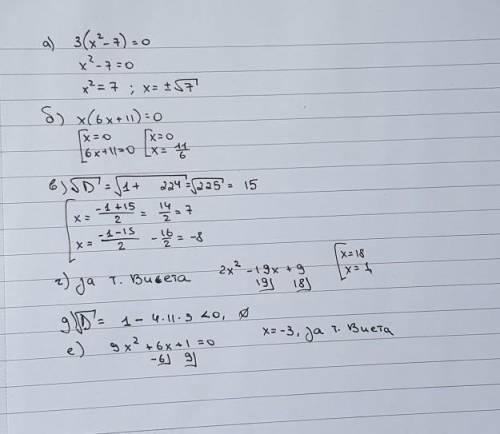 а) 3(x² - 7) = 0
x² - 7 = 0
x² = 7 ; x = ±√7
б) x(6x + 11) = 0
[x = 0 [x = 0
6x + 11 = 0 x = 11/6
в) √D = √1 + 224 = √225 = 15
[x = -1+15/2 = 14/2 = 7
x = -1-15/2 - 16/2 = -8
г) за т. Виета 2x² - 19x + 9 [x = 18
19 18 x = 1
д) √D = 1 - 4·11·9 < 0, ∅
е) 9x² + 6x + 1 = 0 x = -3, за т. Виета
-6 9